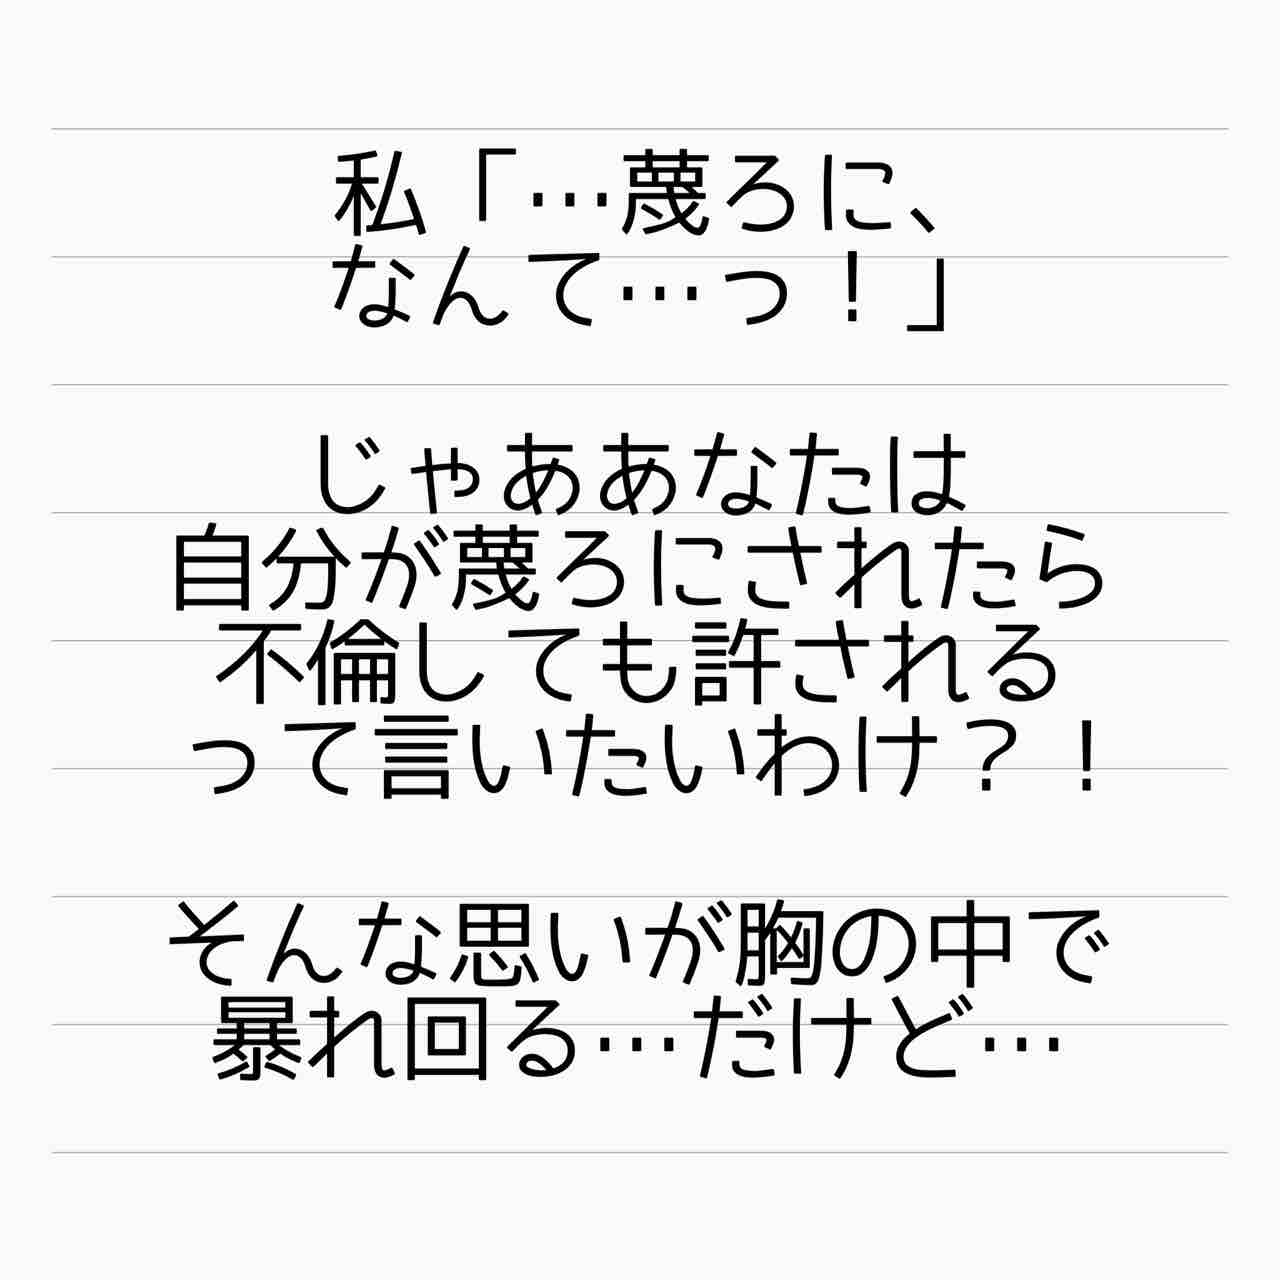 私「…蔑ろに、
なんて…っ！」
じゃああなたは
自分が蔑ろにされたら
不倫しても許される
って言いたいわけ？！
そんな思いが胸の中で
暴れ回る…だけど…